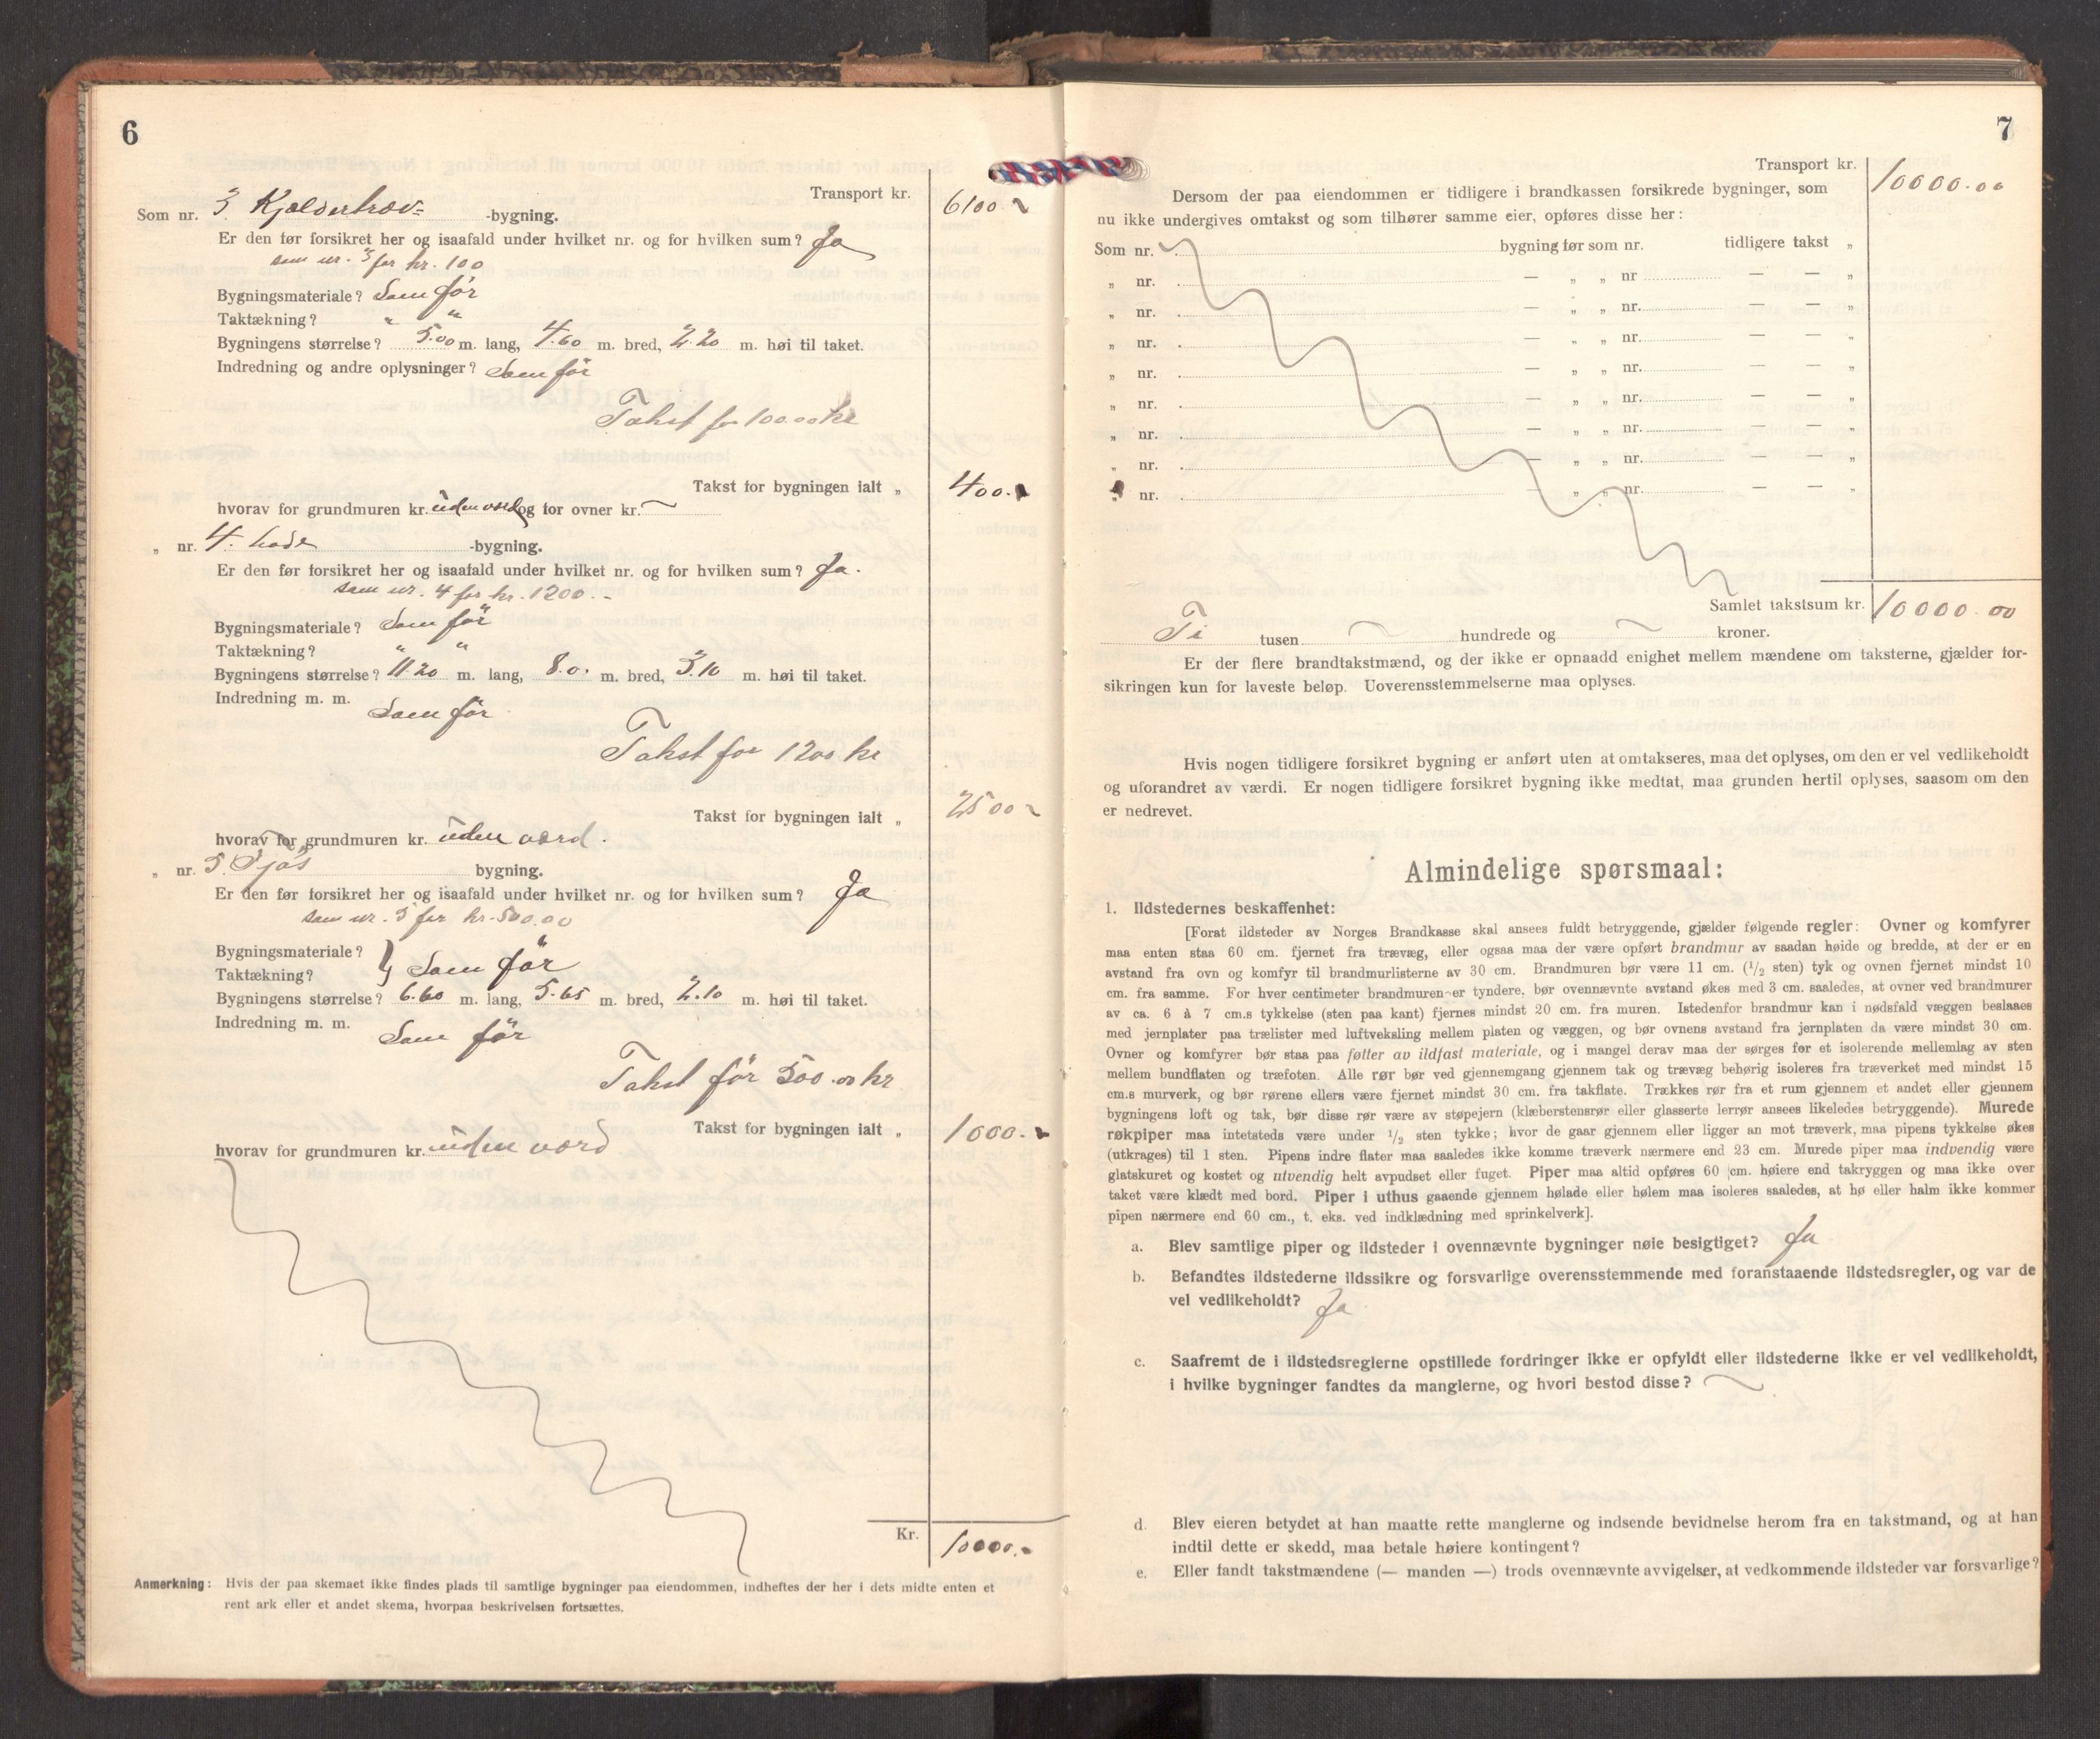 6
Transport kr. 6100.
Som nr. 3 Kjelderhrov= -bygning.
Er den før forsikret her og isaafald under hvilket nr. og for hvilken sum? Ja
som nr. 3 for kr. 100
Bygningsmateriale? Som för
Taktækning? " "
Bygningens størrelse? 5.00 m. lang, 4.60 m. bred, 2.20 m. høi til taket.
Indredning og andre oplysninger? Som för
Takst for 100.00 kr
Takst for bygningen ialt „ 400.
hvorav for grundmuren kr. uden værd og for ovner kr. ~
„ nr. 4. Lade -bygning.
Er den før forsikret her og isaafald under hvilket nr. og for hvilken sum? Ja.
som nr. 4 for kr. 1200.-
Bygningsmateriale? Som för
Taktækning? " "
Bygningens størrelse? 11.20 m. lang, 8.0. m. bred, 3.10 m. høi til taket.
Indredning m. m. Som för
Takst for 1200 kr
Takst for bygningen ialt „ 2500
hvorav for grundmuren kr. uden værd.
„ nr. 5. Fjøs bygning.
Er den før forsikret her og isaafald under hvilket nr. og for hvilken sum? Ja
som nr. 5 for kr. 500.00
Bygningsmateriale? } Som för
Taktækning?
Bygningens størrelse? 6.60 m. lang, 5.65 m. bred, 2.10 m. høi til taket.
Indredning m. m. Som för
Takst för 500.00 kr
Takst for bygningen ialt „ 1000.
hvorav for grundmuren kr. uden værd
Kr. 10000.-
Anmerkning: Hvis der paa skemaet ikke findes plads til samtlige bygninger paa eiendommen, indheftes der her i dets midte enten et
rent ark eller et andet skema, hvorpaa beskrivelsen fortsættes.
7
Transport kr. 10000.00
Dersom der paa eiendommen er tidligere i brandkassen forsikrede bygninger, som
nu ikke undergives omtakst og som tilhører samme eier, opføres disse her:
Som nr. bygning før som nr. tidligere takst „
„ nr. — „ „ nr — — „
„ nr. — „ „ nr. — — „
„ nr. — „ „ nr. — — „
„ nr. — „ „ nr. — — „
„ nr. — „ „ nr. — — „
„ nr. — „ „ nr. — — „
„ nr. — „ „ nr. — — „
„ nr. — „ „ nr. — — „
Samlet takstsum kr. 10000.00
Ti tusen ~ hundrede og ~ kroner.
Er der flere brandtakstmænd, og der ikke er opnaadd enighet mellem mændene om taksterne, gjælder for-
sikringen kun for laveste beløp. Uoverensstemmelserne maa oplyses.
Hvis nogen tidligere forsikret bygning er anført uten at omtakseres, maa det oplyses, om den er vel vedlikeholdt
og uforandret av værdi. Er nogen tidligere forsikret bygning ikke medtat, maa grunden hertil oplyses, saasom om den
er nedrevet.
Almindelige spørsmaal:
1. Ildstedernes beskaffenhet:
[Forat ildsteder av Norges Brandkasse skal ansees fuldt betryggende, gjælder følgende regler: Ovner og komfyrer
maa enten staa 60 cm. fjernet fra trævæg, eller ogsaa maa der være opført brandmur av saadan høide og bredde, at der er en
avstand fra ovn og komfyr til brandmurlisterne av 30 cm. Brandmuren bør være 11 cm. (1/2 sten) tyk og ovnen fjernet mindst 10
cm. fra samme. For hver centimeter brandmuren er tyndere, bør ovennævnte avstand økes med 3 cm. saaledes, at ovner ved brandmurer
av ca. 6 à 7 cm.s tykkelse (sten paa kant) fjernes mindst 20 cm. fra muren. Istedenfor brandmur kan i nødsfald væggen beslaaes
med jernplater paa trælister med luftveksling mellem platen og væggen, og bør ovnens avstand fra jernplaten da være mindst 30 cm.
Ovner og komfyrer bør staa paa føtter av ildfast materiale, og i mangel derav maa der sørges for et isolerende mellemlag av sten
mellem bundflaten og træfoten. Alle rør bør ved gjennemgang gjennem tak og trævæg behørig isoleres fra træverket med mindst 15
cm.s murverk, og bør rørene ellers være fjernet mindst 30 cm. fra takflate. Trækkes rør fra et rum gjennem et andet eller gjennem
bygningens loft og tak, bør disse rør være av støpejern (klæberstensrør eller glasserte lerrør ansees likeledes betryggende). Murede
røkpiper maa intetsteds være under 1/2 sten tykke; hvor de gaar gjennem eller ligger an mot træverk, maa pipens tykkelse økes
(utkrages) til 1 sten. Pipens indre flater maa saaledes ikke komme træverk nærmere end 23 cm. Murede piper maa indvendig være
glatskuret og kostet og utvendig helt avpudset eller fuget. Piper maa altid opføres 60 cm. høiere end takryggen og maa ikke over
taket være klædt med bord. Piper i uthus gaaende gjennem hølade eller hølem maa isoleres saaledes, at hø eller halm ikke kommer
pipen nærmere end 60 cm., t. eks. ved indklædning med sprinkelverk].
a. Blev samtlige piper og ildsteder i ovennævnte bygninger nøie besigtiget? Ja
b. Befandtes ildstederne ildssikre og forsvarlige overensstemmende med foranstaaende ildstedsregler, og var de
vel vedlikeholdt? Ja
c. Saafremt de i ildstedsreglerne opstillede fordringer ikke er opfyldt eller ildstederne ikke er vel vedlikeholdt,
i hvilke bygninger fandtes da manglerne, og hvori bestod disse? ~
d. Blev eieren betydet at han maatte rette manglerne og indsende bevidnelse herom fra en takstmand, og at han
indtil dette er skedd, maa betale høiere kontingent?
e. Eller fandt takstmændene (— manden —) trods ovennævnte avvigelser, at vedkommende ildsteder var forsvarlige?